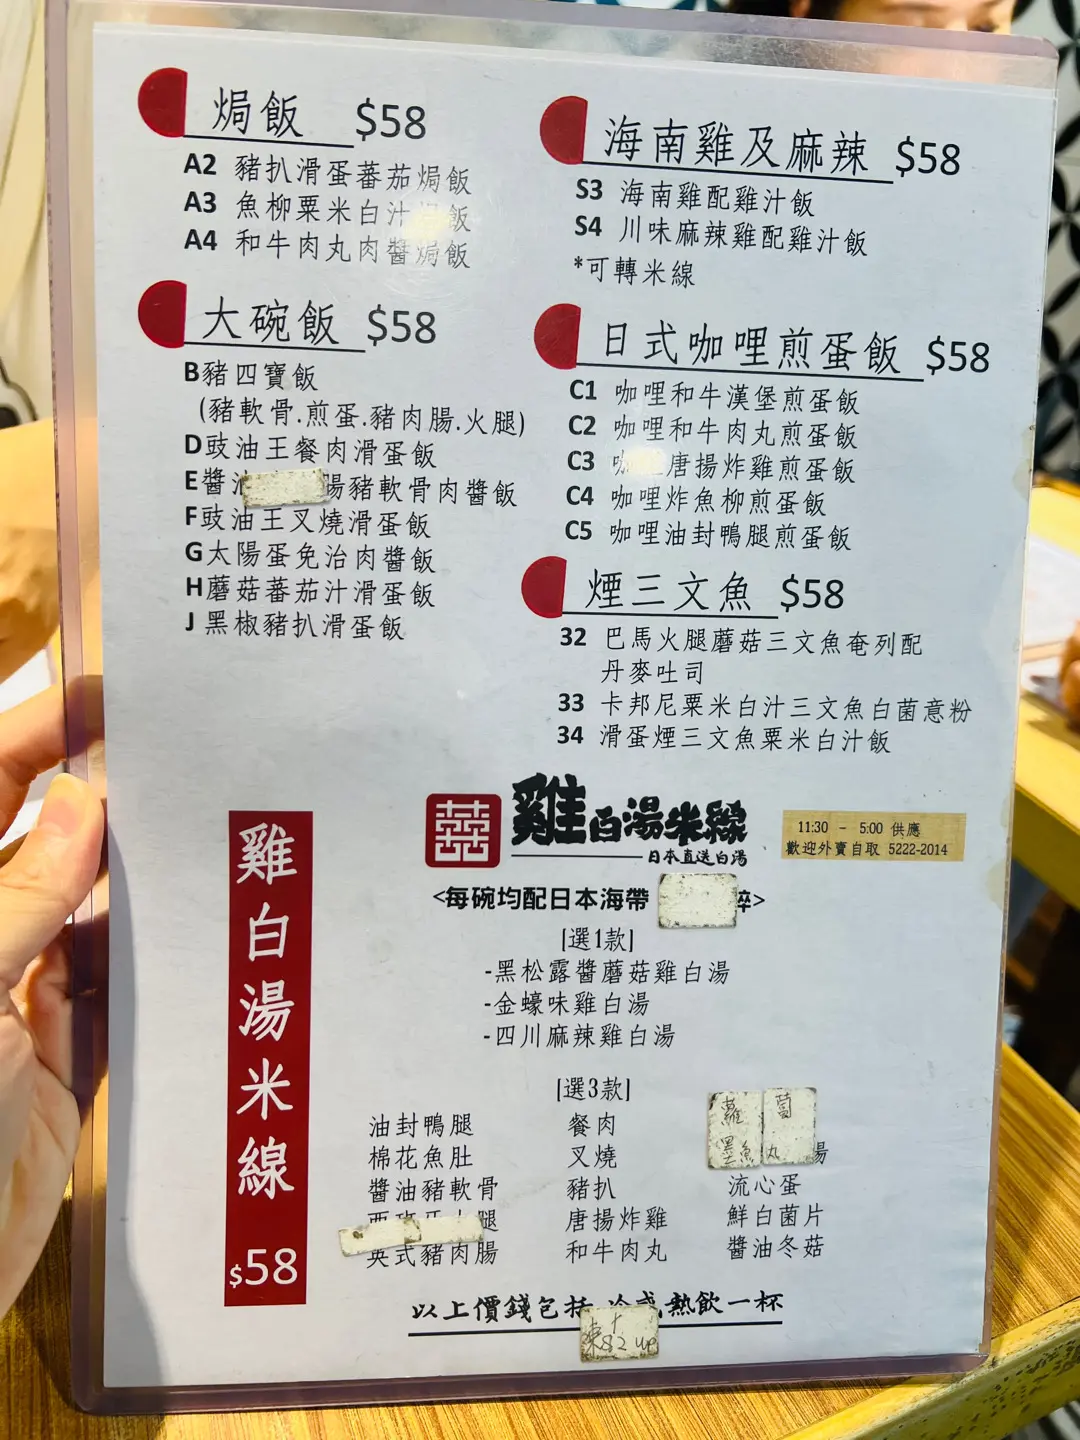 焗飯 $58
A2 豬扒滑蛋蕃茄焗飯
A3 魚柳粟米白汁焗飯
A4 和牛肉丸肉醬焗飯
大碗飯 $58
B豬四寶飯
(豬軟骨.煎蛋.豬肉腸.火腿)
D豉油王餐肉滑蛋飯
E醬油 陽豬軟骨肉醬飯
F豉油王叉燒滑蛋飯
G太陽蛋免治肉醬飯
H蘑菇蕃茄汁滑蛋飯
J黑椒豬扒滑蛋飯
海南雞及麻辣 $58
S3 海南雞配雞汁飯
S4 川味麻辣雞配雞汁飯
*可轉米線
日式咖哩煎蛋飯 $58
C1 咖哩和牛漢堡煎蛋飯
C2 咖哩和牛肉丸煎蛋飯
C3 咖哩唐揚炸雞煎蛋飯
C4 咖哩炸魚柳煎蛋飯
C5 咖哩油封鴨腿煎蛋飯
煙三文魚 $58
32 巴馬火腿蘑菇三文魚奄列配
丹麥吐司
33 卡邦尼粟米白汁三文魚白菌意粉
34 滑蛋煙三文魚粟米白汁飯
雞白湯米線
$58
囍 雞白湯米線
日本直送白湯
11:30 - 5:00 供應
歡迎外賣自取 5222-2014
<每碗均配日本海帶 >
[選1款]
-黑松露醬蘑菇雞白湯
-金蠔味雞白湯
-四川麻辣雞白湯
[選3款]
油封鴨腿 餐肉 蘿蔔
棉花魚肚 叉燒 墨魚丸 腸
醬油豬軟骨 豬扒 流心蛋
腿 唐揚炸雞 鮮白菌片
英式豬肉腸 和牛肉丸 醬油冬菇
以上價錢包括 熱飲一杯
凍+$2 up